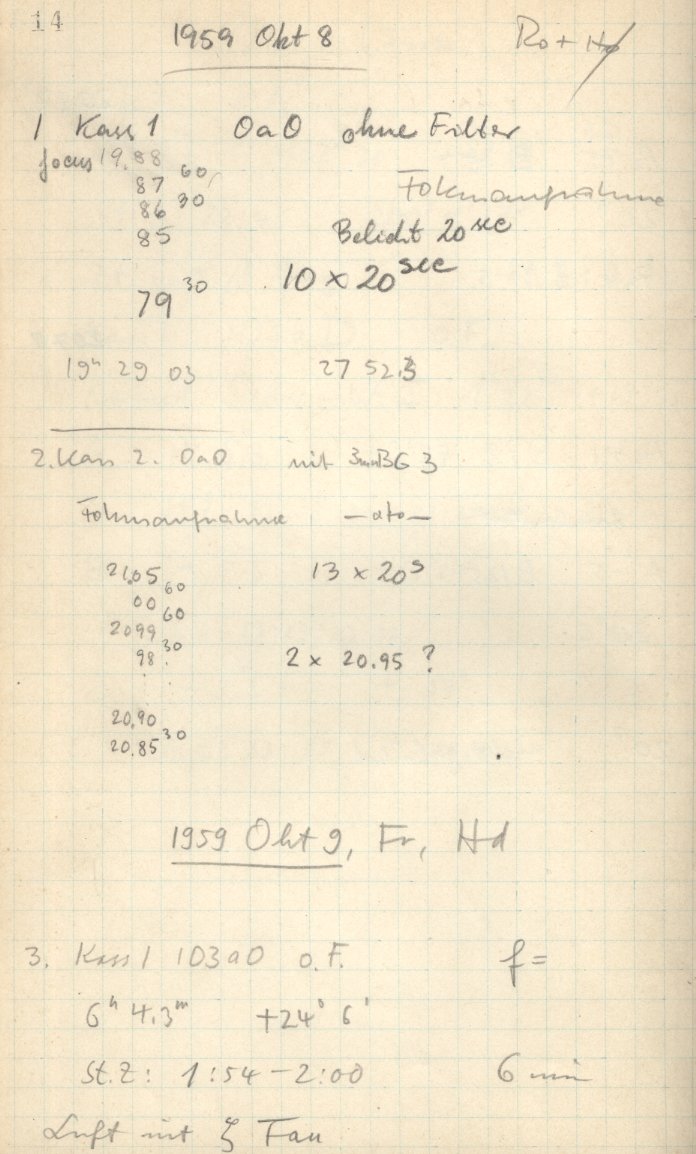 14
1959 Okt 8 Ro + Hd
1 Kass 1 OaO ohne Filter
focus 19,88
87 60
86 30 Fokusaufnahme
85 Belicht 20 sec
79 30 10 x 20 sec
19h 29 03 27 52.3
2. Kass 2. OaO mit 3mm BG 3
Fokusaufnahme —dto—
21,05 60 13 x 20 s
00 60
2099
98 30 2 x 20.95 ?
20,90
20,85 30
1959 Okt 9, Fr, Hd
3. Kass 1 103aO o.F. f=
6h 4.3m +24° 6'
St.Z: 1:54 – 2:00 6 min
Luft mit ζ Tau